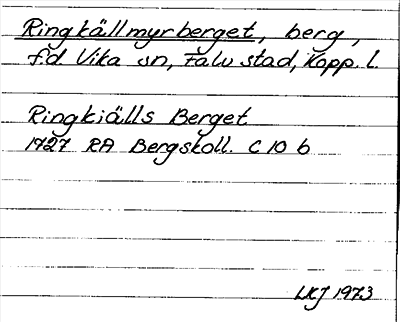 Ringkällmyrberget, berg,
f.d. Vika sn, Falu stad, Kopp. l.
Ringkiälls Berget
1727 RA Bergskoll. C 10 b
LKJ 1973